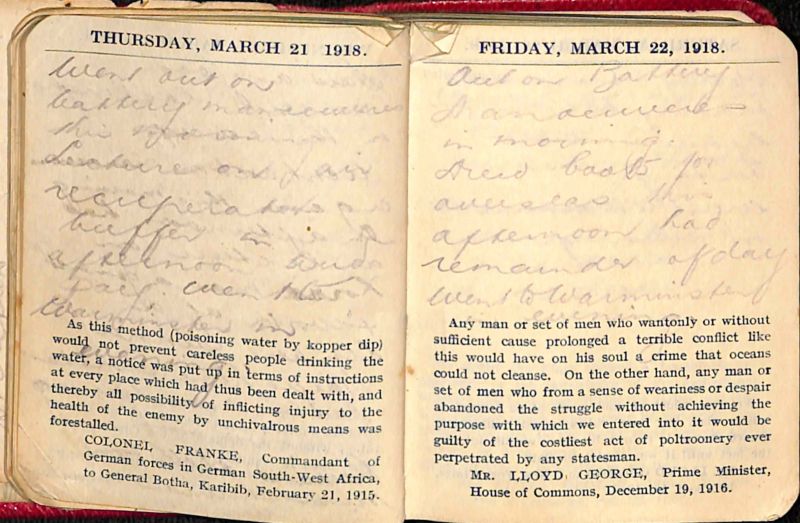 THURSDAY, MARCH 21 1918.
Went out on
battery manoeuvres
this morning
Lecture on air
recuperator
buffer in
afternoon
went to
Warminster in
evening
As this method (poisoning water by kopper dip)
would not prevent careless people drinking the
water, a notice was put up in terms of instructions
at every place which had thus been dealt with, and
thereby all possibility of inflicting injury to the
health of the enemy by unchivalrous means was
forestalled.
COLONEL FRANKE, Commandant of
German forces in German South-West Africa,
to General Botha, Karibib, February 21, 1915.
FRIDAY, MARCH 22, 1918.
Out on Battery
Manoeuvres
in morning.
Drew boots for
overseas this
afternoon had
remainder of day
Went to Warminster
in evening
Any man or set of men who wantonly or without
sufficient cause prolonged a terrible conflict like
this would have on his soul a crime that oceans
could not cleanse. On the other hand, any man or
set of men who from a sense of weariness or despair
abandoned the struggle without achieving the
purpose with which we entered into it would be
guilty of the costliest act of poltroonery ever
perpetrated by any statesman.
MR. LLOYD GEORGE, Prime Minister,
House of Commons, December 19, 1916.